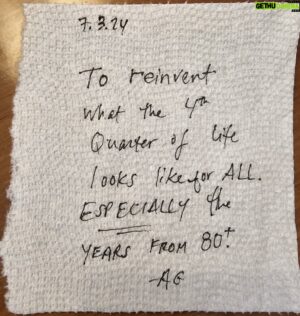 GETHU
7.3.24
To reinvent
what the 4th
Quarter of life
looks like for ALL.
ESPECIALLY the
YEARS FROM 80+.
-AG